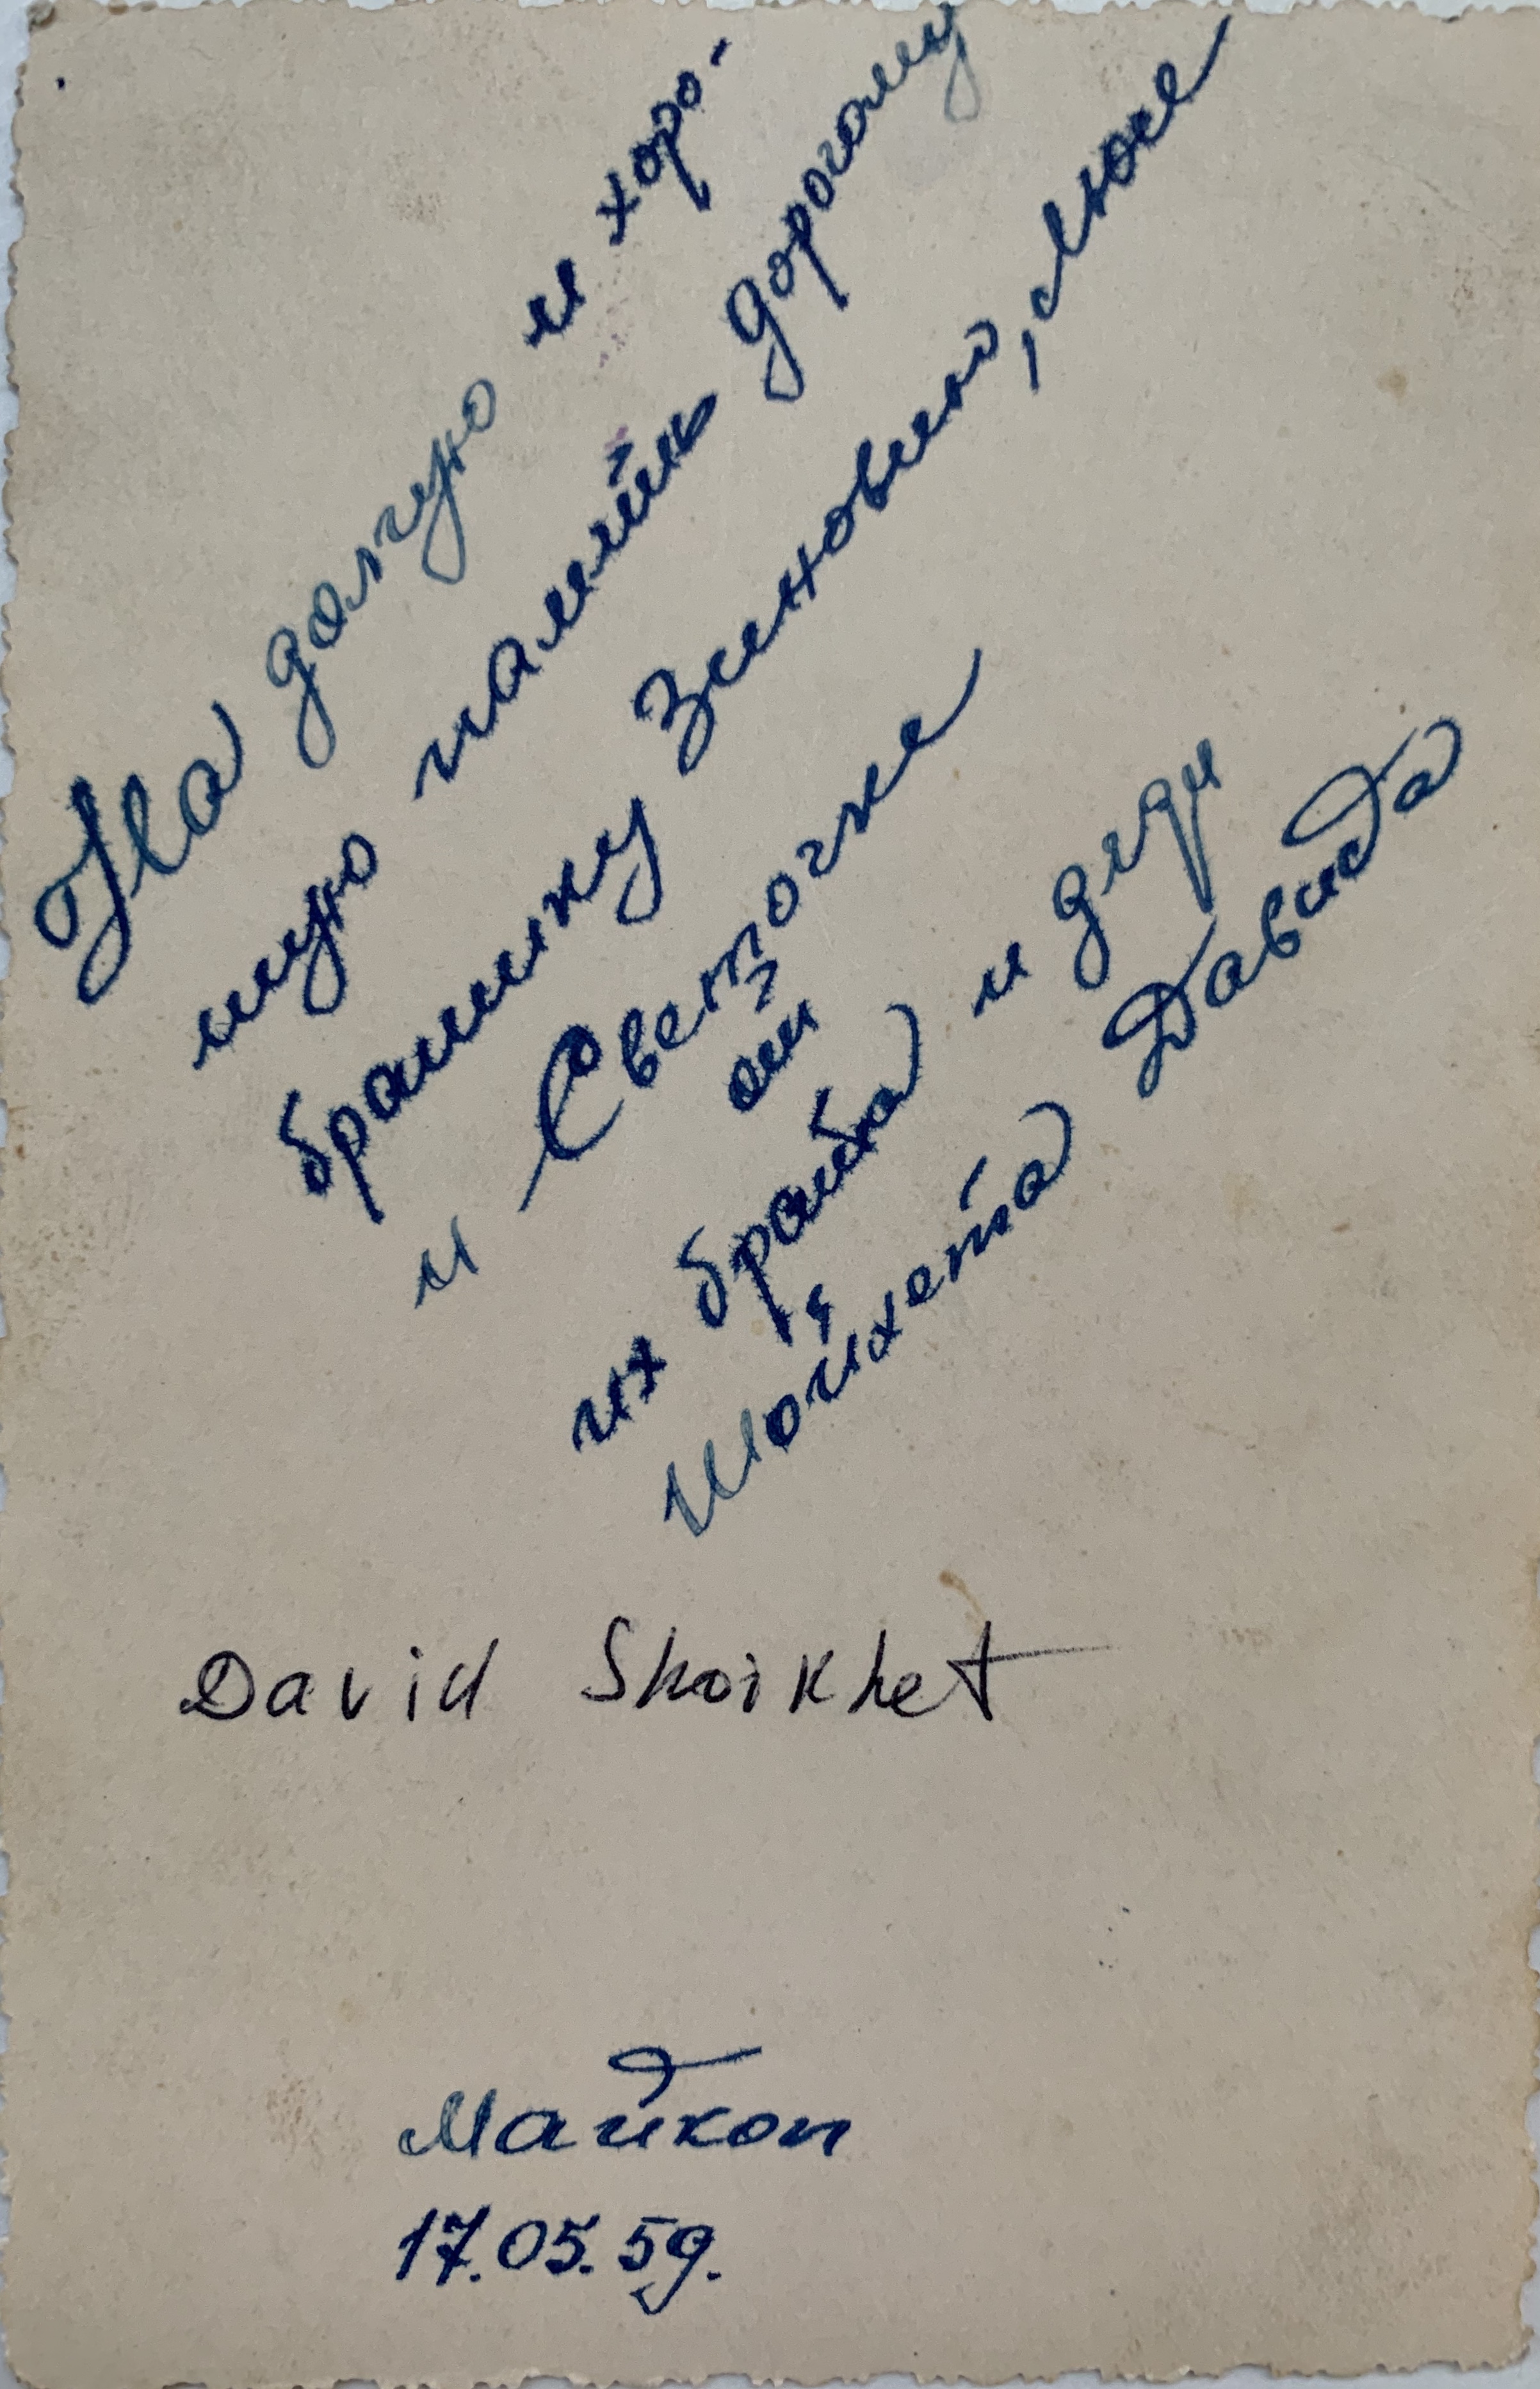 На долгую и хоро-
шую память дорогому
братику Зиновию, Люсе
и Светочке
от
их брата и дяди
Шойхета Давида
David Shoikhet
Майкоп
17.05.59.